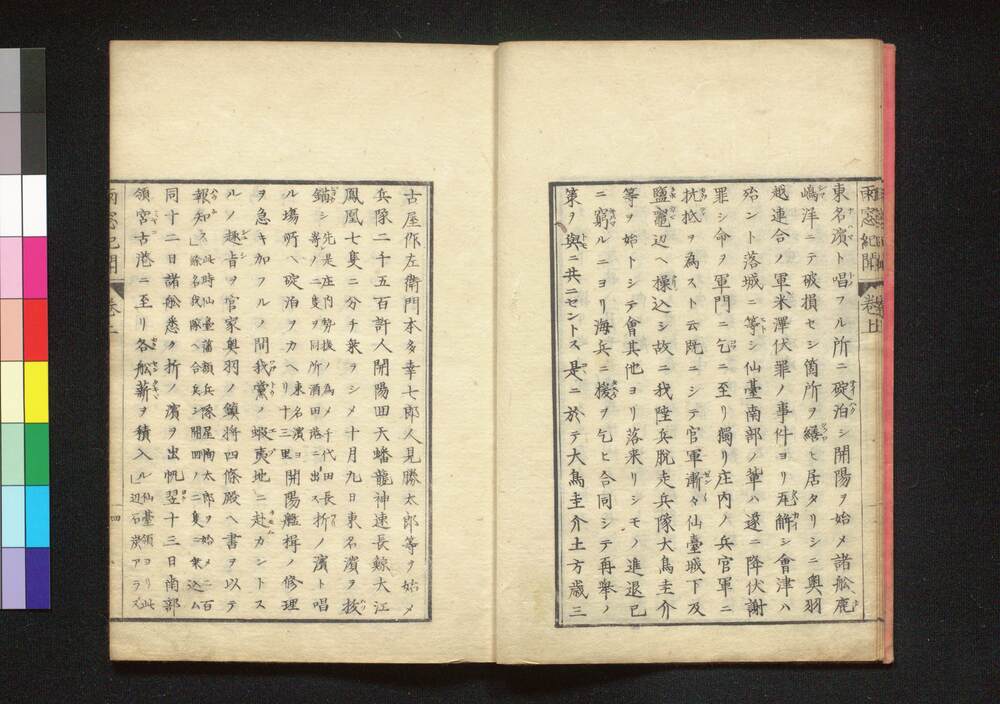 雨窓紀聞 巻上
東名濱ト唱フル所ニ碇泊シ開陽ヲ始メ諸舩鹿
嶋洋ニテ破損セシ箇所ヲ繕ヒ居タリシニ奥羽
越連合ノ軍米澤伏罪ノ事件ヨリ瓦解シ會津ハ
殆ント落城ニ等シ仙臺南部ノ輩ハ遂ニ降伏謝
罪シ命ヲ軍門ニ乞ニ至リ獨リ庄内ノ兵官軍ニ
抗抵ヲ為スト云既ニシテ官軍漸々仙臺城下及
鹽竃辺ヘ操込シ故ニ我陸兵脱走兵隊大鳥圭介
等ヲ始トシテ會其他ヨリ落来リシモノ進退已
ニ窮ルニヨリ海兵ニ援ヲ乞ヒ合同シテ再擧ノ
策ヲ與ニ共ニセントス是ニ於テ大鳥圭介土方歳三
古屋作左衛門本多幸七郎人見勝太郎等ヲ始メ
兵隊二千五百許人開陽回天蟠龍神速長鯨大江
鳳凰七隻ニ分チ乗ヲシメ十月九日東名濱ヲ抜
錨シ先是庄内勢援ノ為メ千代田長﨑ノ二隻ヲ同所酒田港ニ出ス折ノ濱ト唱
ル塲所ヘ碇泊ヲカヘリ東名濱ヨリ十三里開陽艦楫ノ修理
ヲ急キ加フルノ間我黨ノ蝦夷地ニ赴カントス
ルノ趣旨ヲ官家奥羽ノ鎮将四條殿ヘ書ヲ以テ
報知ス此時仙臺藩額兵隊星恂太郎ヲ始メ二百餘名我隊ヘ合兵シ開回ノ二隻ニ乗込ム
同十二日諸舩悉ク折ノ濱ヲ出帆翌十三日南部
領宮古港ニ至リ各舩薪ヲ積入ル仙臺領ヨリ此辺石炭アラズ
雨窓紀聞 巻上 四